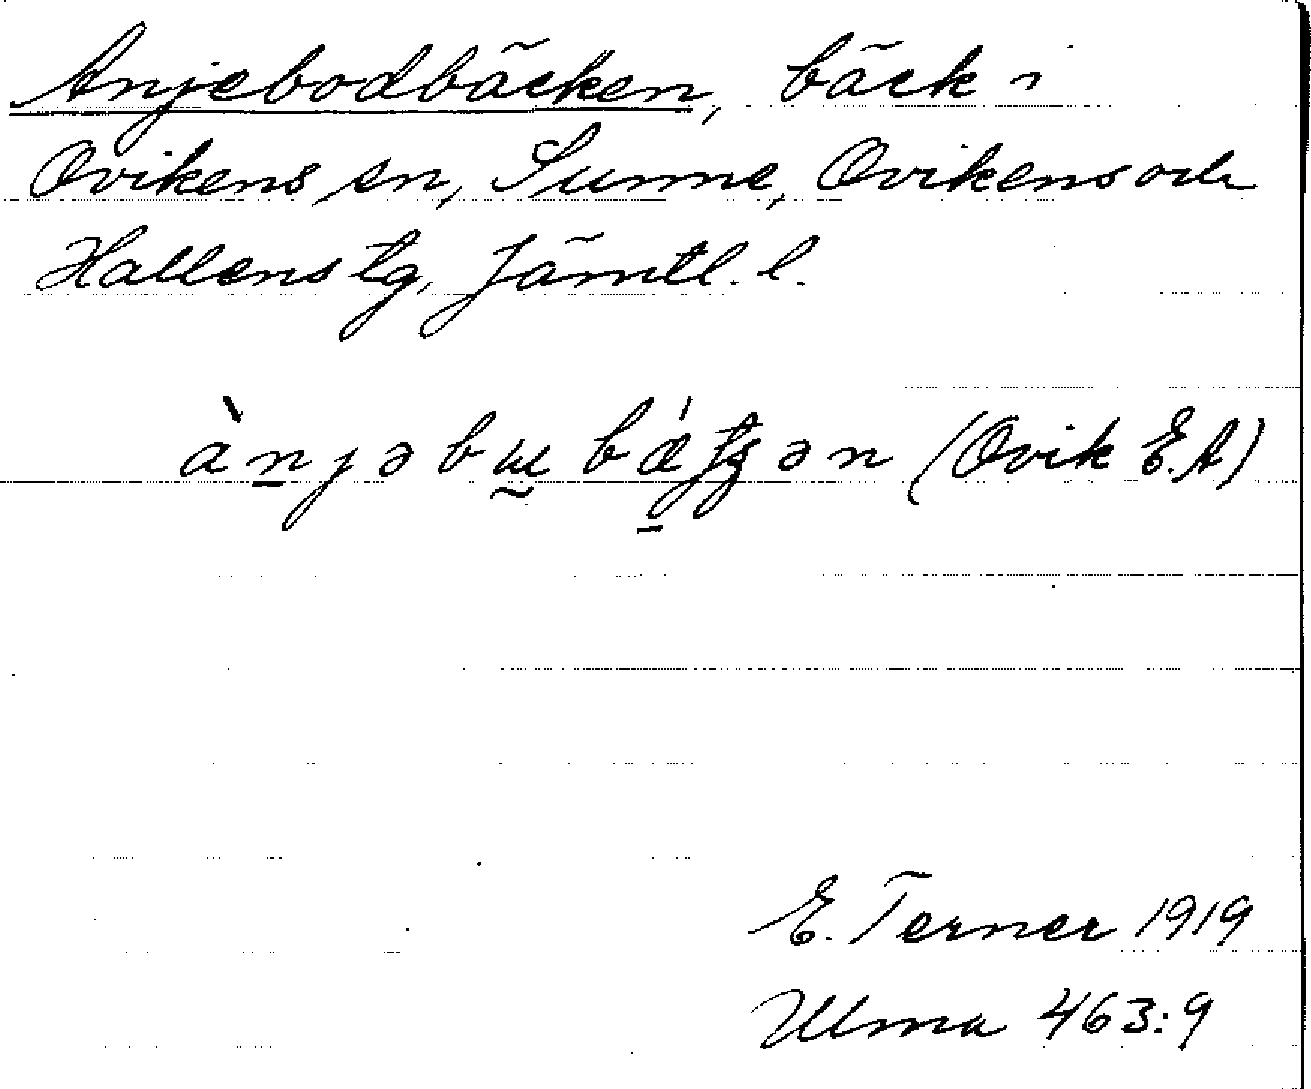 Anjebodbäcken, bäck i
Ovikens sn, Sunne, Ovikens och
Hallens tg, Jämtl. l.
ànjəbɯbǽtʂən (Ovik E.A)
E. Terner 1919
Ulma 463:9